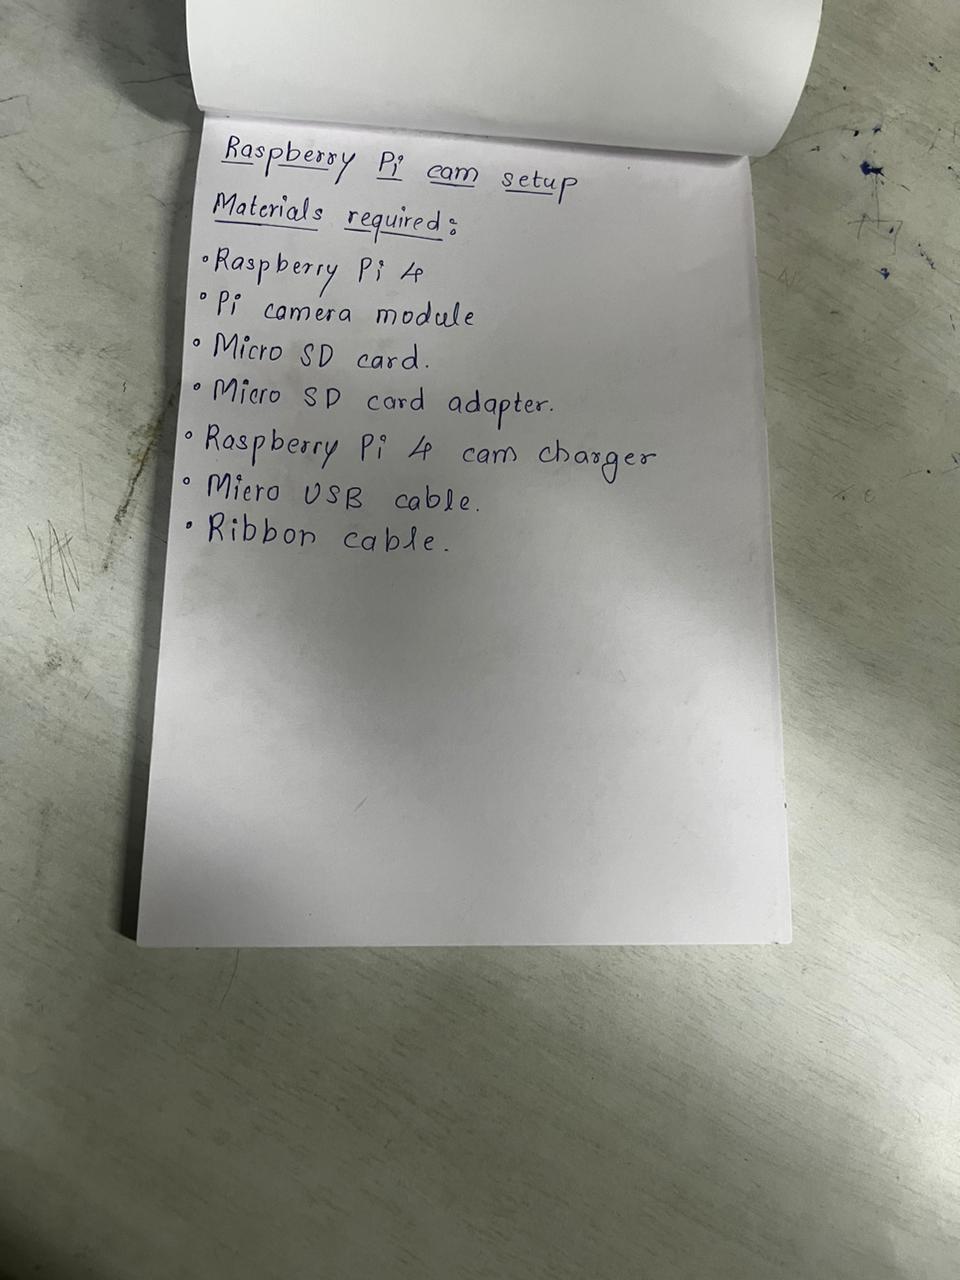 Raspberry Pi cam setup
Materials required:
• Raspberry Pi 4
• Pi camera module
• Micro SD card.
• Micro SD card adapter.
• Raspberry Pi 4 cam charger
• Micro USB cable.
• Ribbon cable.